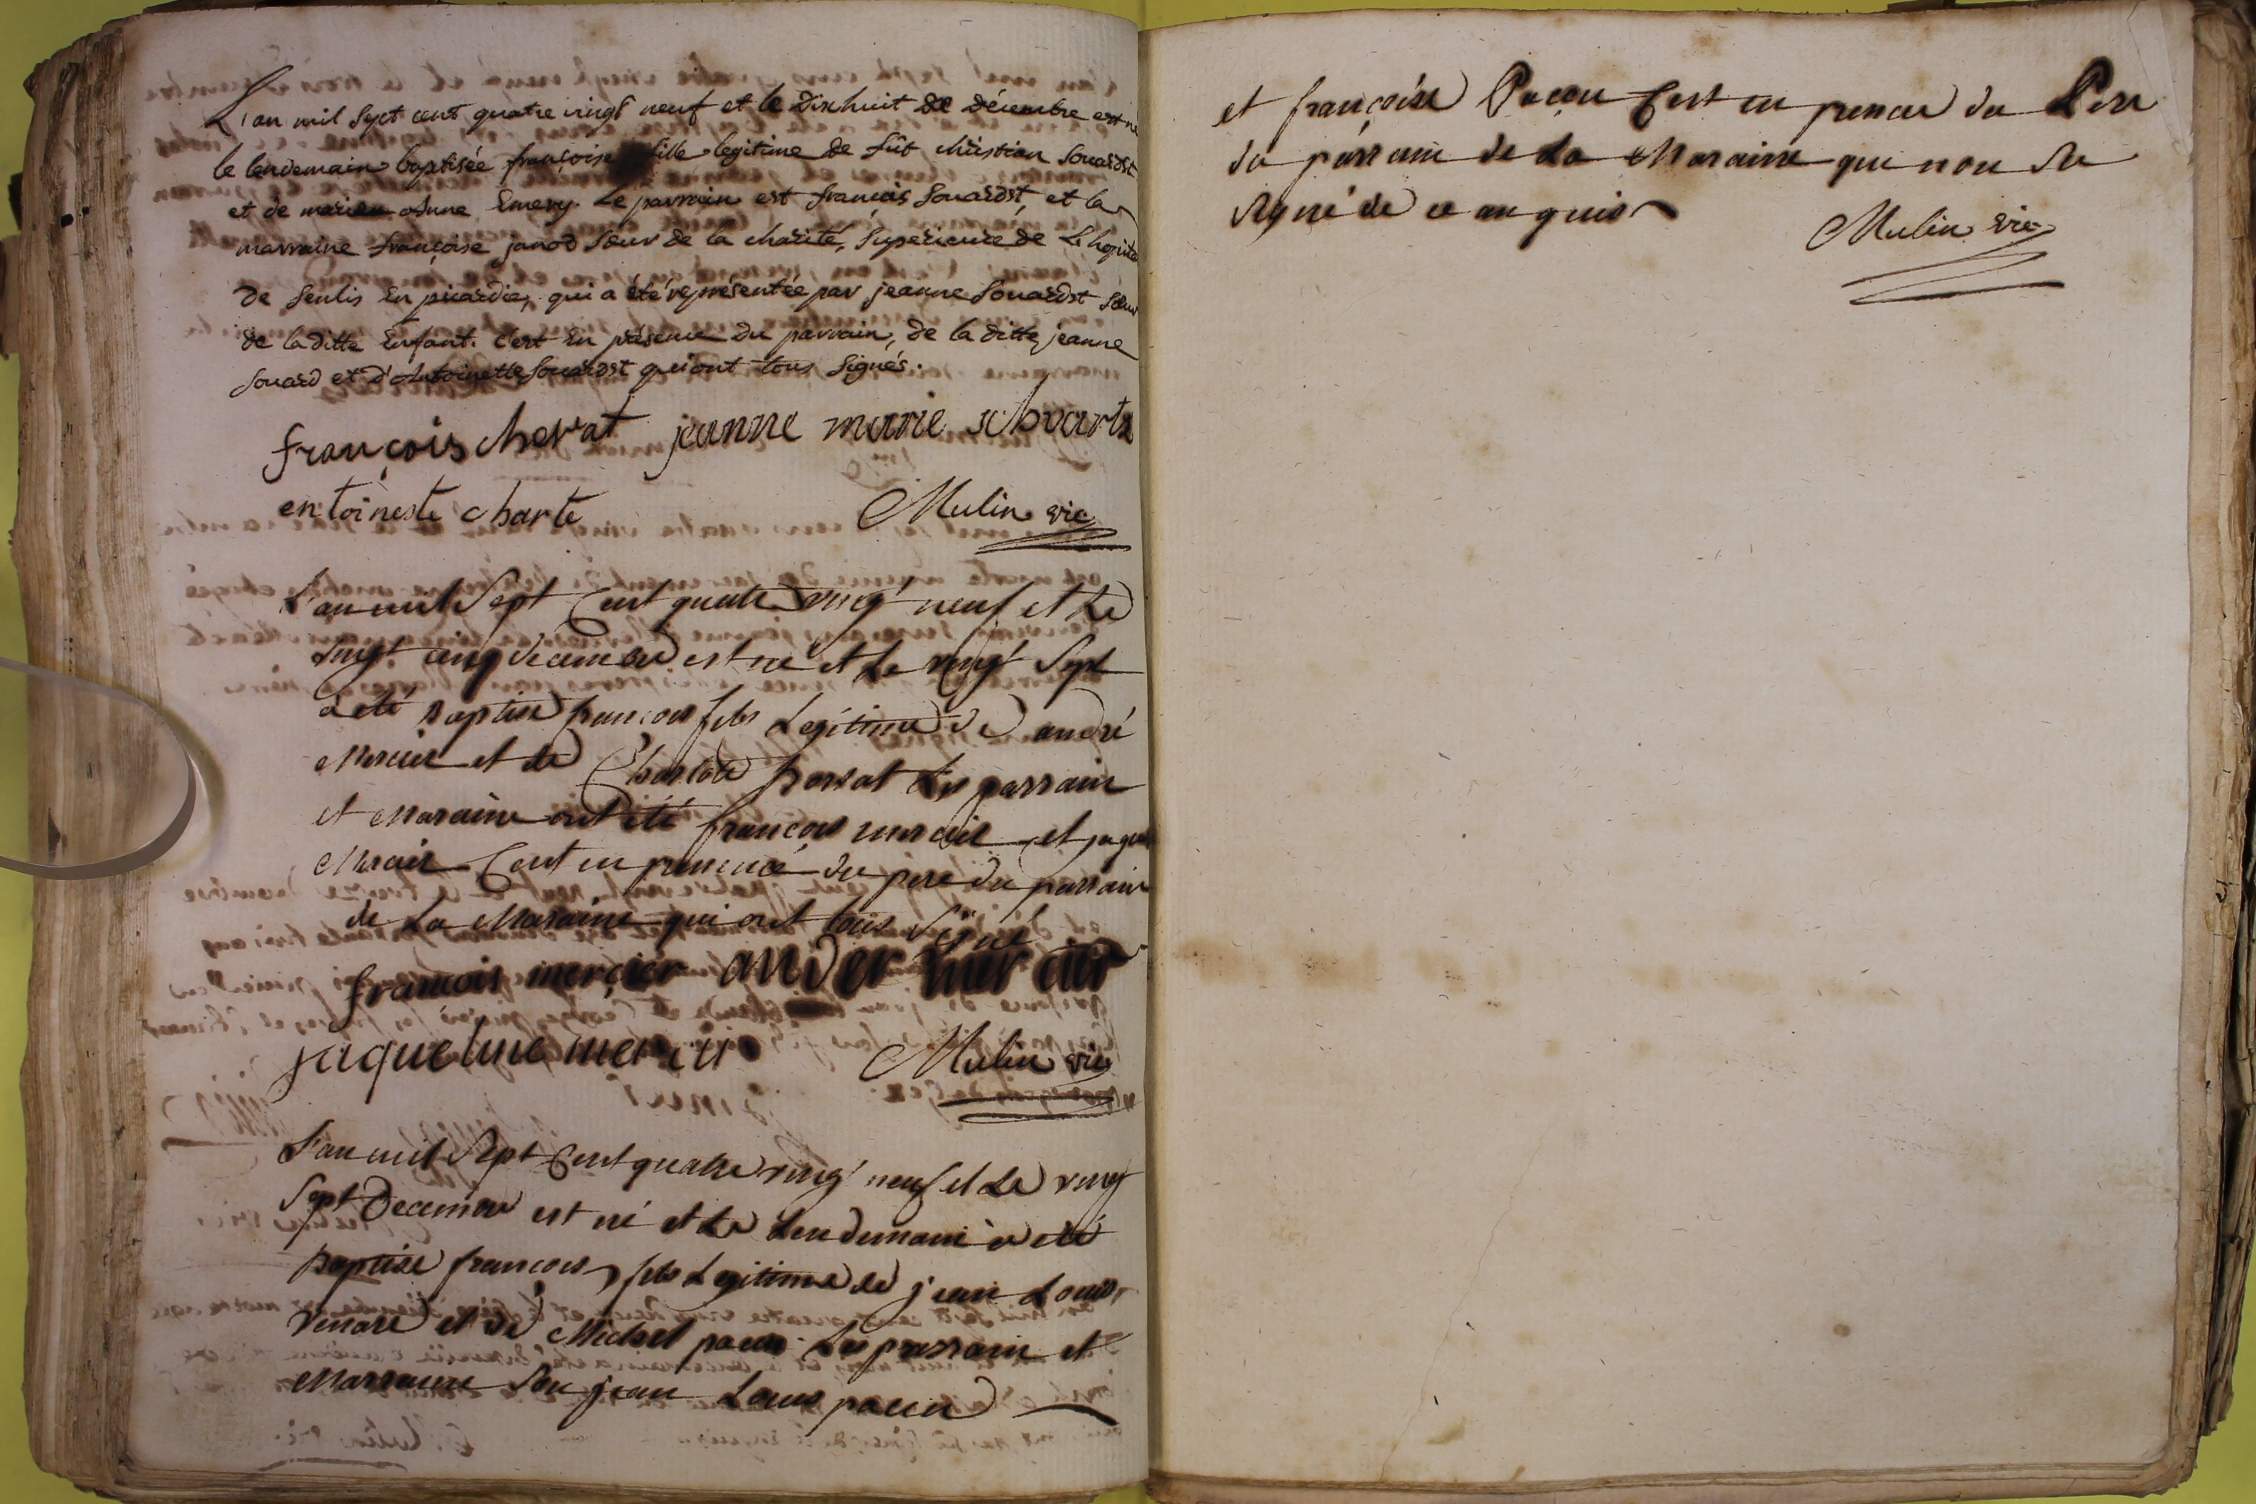 L'an mil sept cent quatre vingt neuf et le dixhuit de décembre est né
le lendemain baptisée françoise fille legitime de fût christian Souardst
et de marie anne Emery. Le parrain est françois Souardst, et la
marraine françoise janod Sœur de la charité, Superieure de L'hopital
de Senlis En picardie, qui a été représentée par jeanne Souardst Sœur
de la ditte Enfant. C'est En présence du parrain, de la ditte jeanne
Souard et d'Antoinette Souardst qui ont tous Signés.
françois chervat jeanne marie schvarts
entoineste charte Mulin vic
L'an mil Sept Cent quatre vingt neuf et Le
vingt cinq decembre est né et Le vingt Sept
a eté Baptisé francois fils Legitime de andré
Mercier et de Charlote Les parrain
et Maraine ont été francois mercier et
Mercier C'est en presence du pere du parrain
de La Maraine qui ont tous signé
francois mercier ander mercier
jaqueline mercier Mulin vic
L'an mil Sept Cent quatre vingt neuf et Le vingt
Sept Decembre est né et Le Lendemain a eté
Baptisé francois fils Legitime de jean Louis
et de Michel Les parrain et
Marraine Son jean Louis pacon
et françoise Pacon C'est en presence du Pere
du parrain de La Maraine que non Su
Signé de ce anquis
Mulin vic